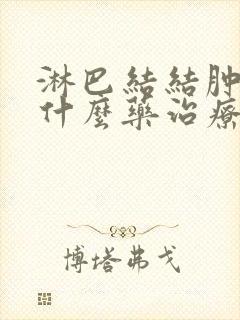 淋巴結結肿
什麼藥治療
博塔弗戈